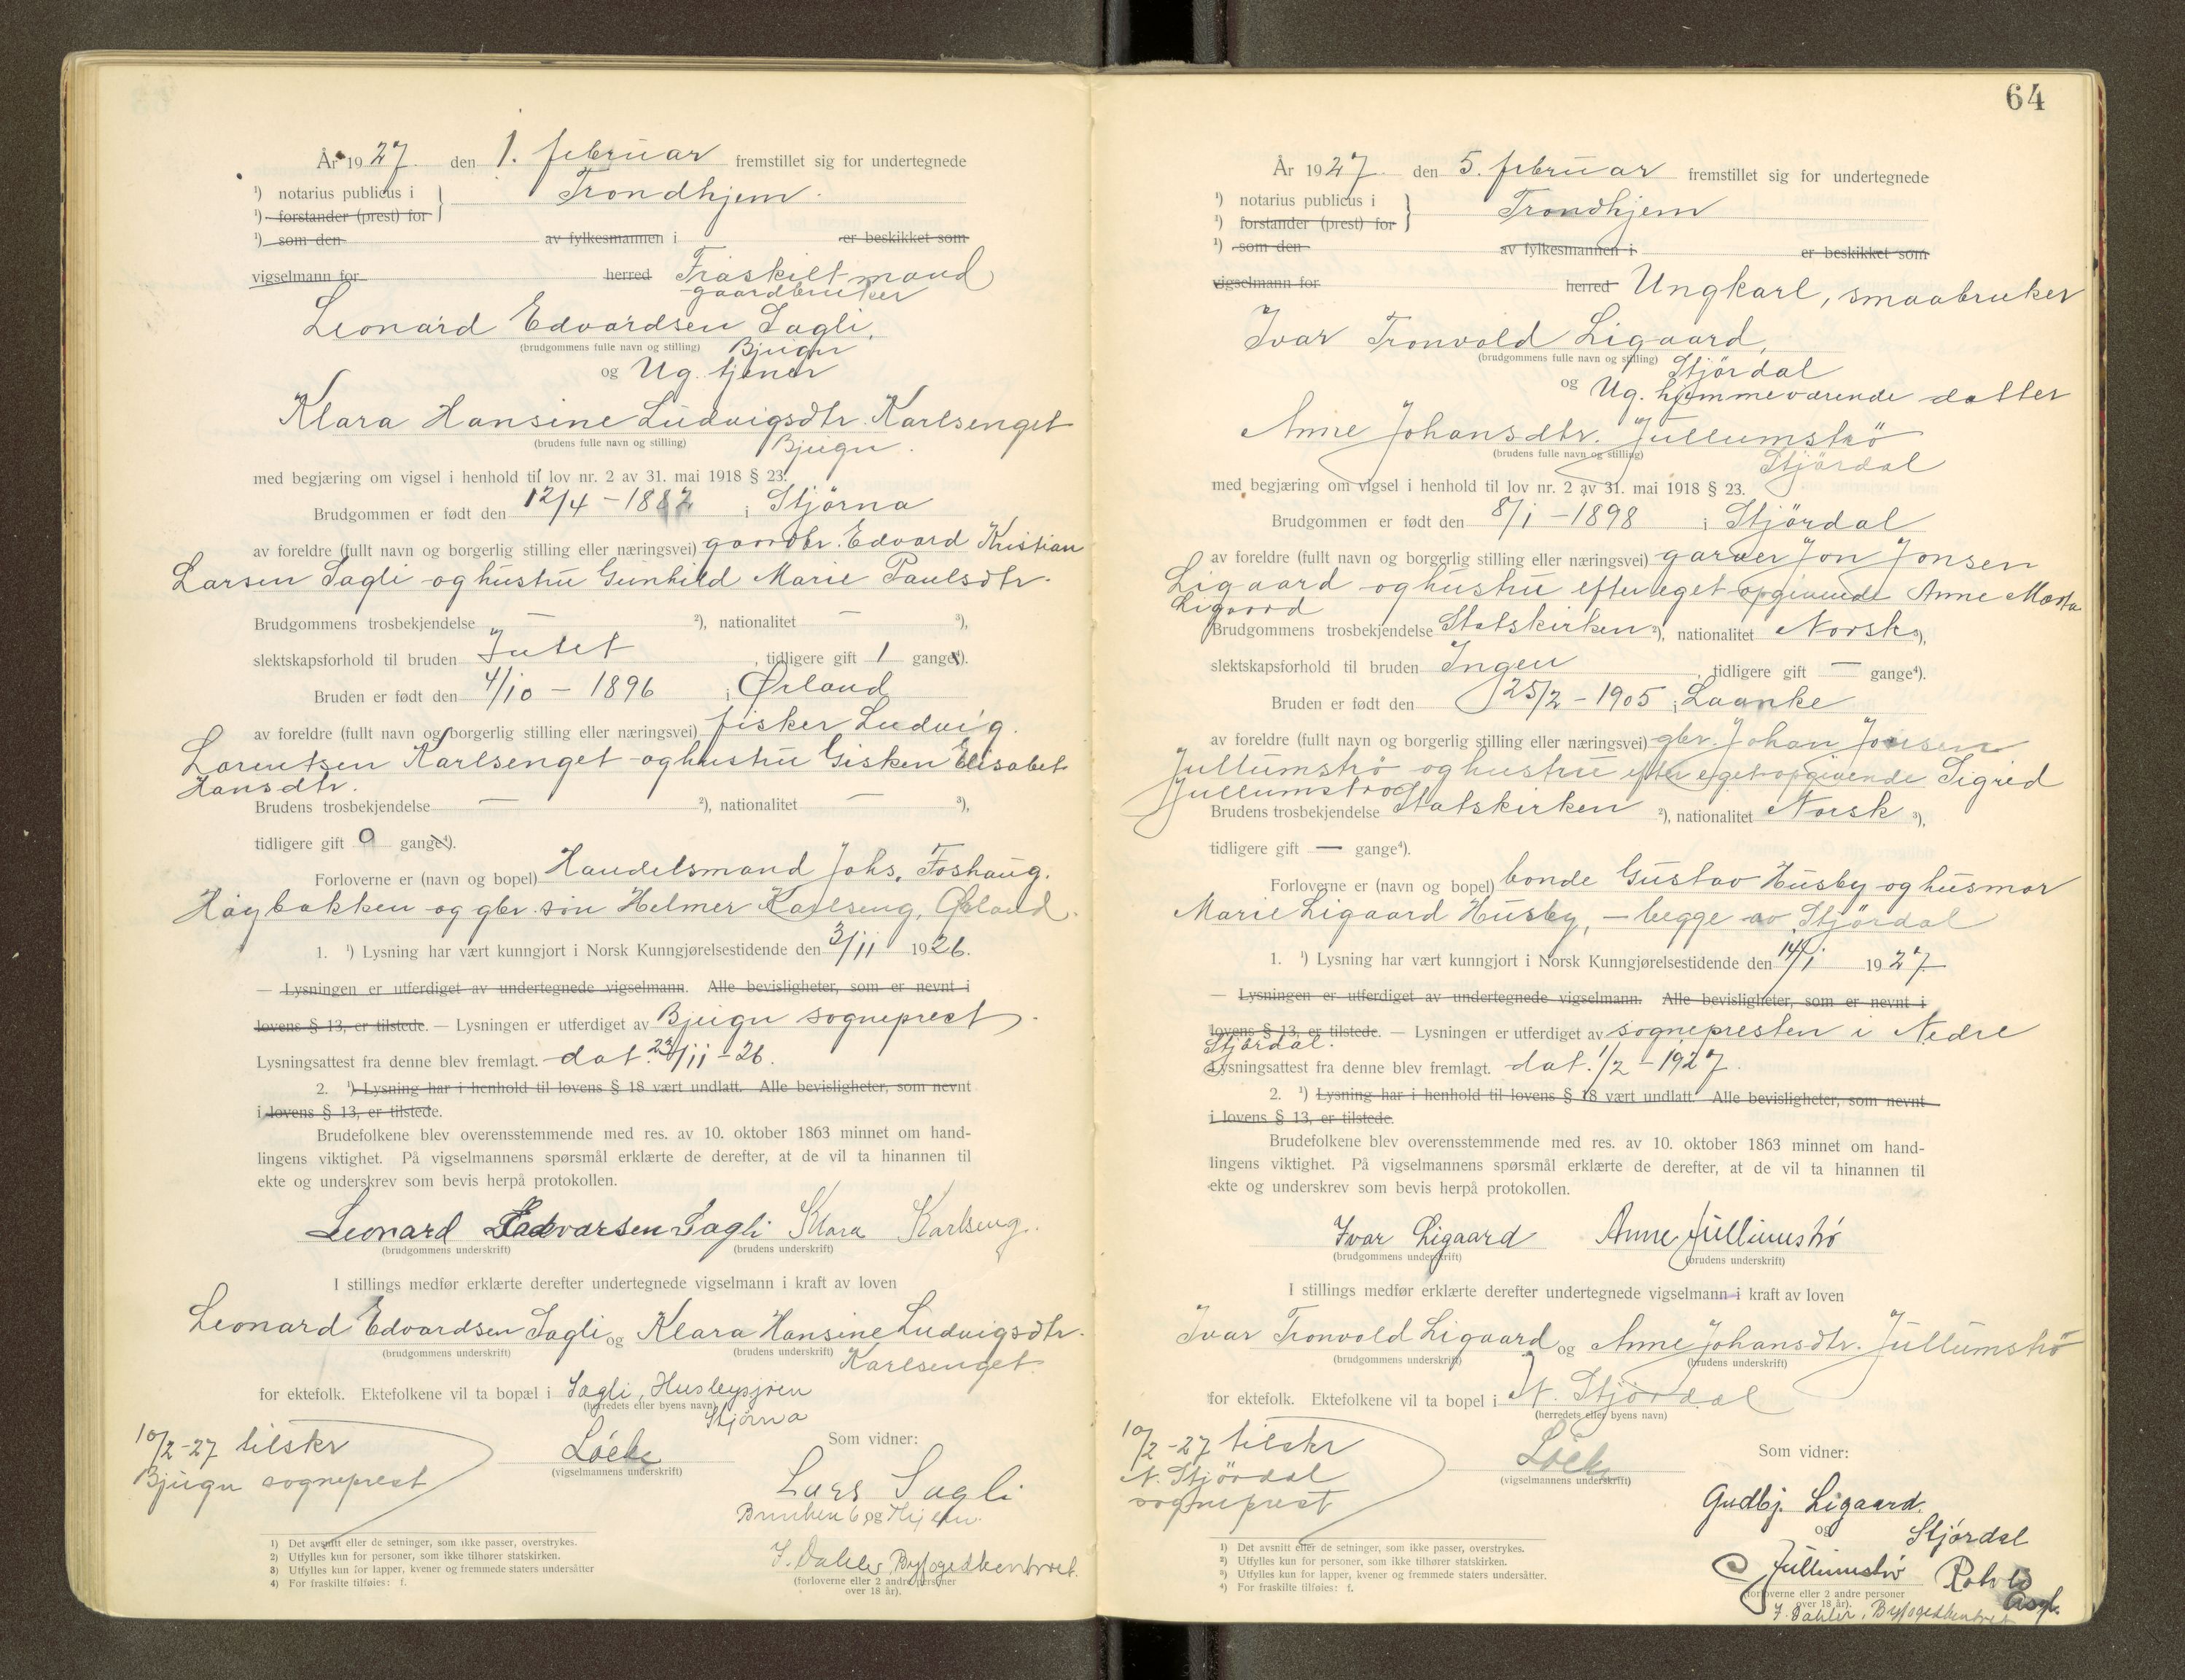 År 1927 den 1. februar fremstillet sig for undertegnede
¹) notarius publicus i
¹) forstander (prest) for } Trondhjem.
¹) som den av fylkesmannen i er beskikket som
vigselmann for herred Fraskilt mand
gaardbruker
Leonard Edvardsen Sagli,
(brudgommens fulle navn og stilling) Bjugn
og Ug. tjener
Klara Hansine Ludvigsdtr. Karlsenget
(brudens fulle navn og stilling) Bjugn.
med begjæring om vigsel i henhold til lov nr. 2 av 31. mai 1918 § 23.
Brudgommen er født den 12/4 - 1882 i Stjørna
av foreldre (fullt navn og borgerlig stilling eller næringsvei) gaardbr. Edvard Kristian
Larsen Sagli og hustru Gunhild Marie Paulsdtr.
Brudgommens trosbekjendelse — ²), nationalitet — ³),
slektskapsforhold til bruden Intet, tidligere gift 1 gange⁴).
Bruden er født den 4/10 - 1896 i Ørland
av foreldre (fullt navn og borgerlig stilling eller næringsvei) fisker Ludvig
Lorentsen Karlsenget og hustru Gisken Elisabet
Hansdtr.
Brudens trosbekjendelse — ²), nationalitet — ³),
tidligere gift 0 gange⁴).
Forloverne er (navn og bopel) Handelsmand Johs. Foshaug.
Høybakken og gbr. søn Helmer Karlseng, Ørland.
1. ¹) Lysning har vært kunngjort i Norsk Kunngjørelsestidende den 3/11 1926.
— Lysningen er utferdiget av undertegnede vigselmann. Alle bevisligheter, som er nevnt i
lovens § 13, er tilstede. — Lysningen er utferdiget av Bjugn sogneprest
Lysningsattest fra denne blev fremlagt. dat. 23/11 - 26.
2. ¹) Lysning har i henhold til lovens § 18 vært undlatt. Alle bevisligheter, som nevnt
i lovens § 13, er tilstede.
Brudefolkene blev overensstemmende med res. av 10. oktober 1863 minnet om hand-
lingens viktighet. På vigselmannens spørsmål erklærte de derefter, at de vil ta hinannen til
ekte og underskrev som bevis herpå protokollen.
Leonard Edvarsen Sagli Klara Karlseng.
(brudgommens underskrift) (brudens underskrift)
I stillings medfør erklærte derefter undertegnede vigselmann i kraft av loven
Leonard Edvardsen Sagli og Klara Hansine Ludvigsdtr.
(brudgommens underskrift) (brudens underskrift) Karlsenget
for ektefolk. Ektefolkene vil ta bopæl i Sagli, Husbysjøen
(herredets eller byens navn) Stjørna
10/2-27 tilskr
Bjugn sogneprest
(vigselmannens underskrift)
Som vidner:
Lars Sagli
J. Dahler, Byfogedkontoret.
(forloverne eller 2 andre personer
over 18 år).
1) Det avsnitt eller de setninger, som ikke passer, overstrykes.
2) Utfylles kun for personer, som ikke tilhører statskirken.
3) Utfylles kun for lapper, kvener og fremmede staters undersåtter
4) For fraskilte tilføies: f.
64
År 1927 den 5. februar fremstillet sig for undertegnede
¹) notarius publicus i
¹) forstander (prest) for } Trondhjem
¹) som den av fylkesmannen i er beskikket som
vigselmann for herred Ungkarl, smaabruker
Ivar Tronvold Ligaard,
(brudgommens fulle navn og stilling) Stjørdal
og Ug. hjemmeværende datter
Anne Johansdtr. Jullumstrø
(brudens fulle navn og stilling) Stjørdal
med begjæring om vigsel i henhold til lov nr. 2 av 31. mai 1918 § 23.
Brudgommen er født den 8/1 - 1898 i Stjördal
av foreldre (fullt navn og borgerlig stilling eller næringsvei) garver Jon Jonsen
Ligaard og hustru efter eget opgivende Anne Marta
Ligaard
Brudgommens trosbekjendelse Statskirken ²), nationalitet Norsk ³),
slektskapsforhold til bruden Ingen, tidligere gift — gange⁴).
Bruden er født den 25/2 - 1905 i Laanke
av foreldre (fullt navn og borgerlig stilling eller næringsvei) gbr. Johan Jonsen
Jullumstrø og hustru efter eget opgivende Sigrid
Jullumstrø
Brudens trosbekjendelse Statskirken ²), nationalitet Norsk ³),
tidligere gift — gange⁴).
Forloverne er (navn og bopel) bonde Gustav Husby og husmor
Marie Ligaard Husby, — begge av Stjördal
1. ¹) Lysning har vært kunngjort i Norsk Kunngjørelsestidende den 14/1 1927
— Lysningen er utferdiget av undertegnede vigselmann. Alle bevisligheter, som er nevnt i
lovens § 13, er tilstede. — Lysningen er utferdiget av sognepresten i Nedre
Stjørdal.
Lysningsattest fra denne blev fremlagt. dat. 1/2 - 1927.
2. ¹) Lysning har i henhold til lovens § 18 vært undlatt. Alle bevisligheter, som nevnt
i lovens § 13, er tilstede.
Brudefolkene blev overensstemmende med res. av 10. oktober 1863 minnet om hand-
lingens viktighet. På vigselmannens spørsmål erklærte de derefter, at de vil ta hinannen til
ekte og underskrev som bevis herpå protokollen.
Ivar Ligaard Anne Jullumstrø
(brudgommens underskrift) (brudens underskrift)
I stillings medfør erklærte derefter undertegnede vigselmann i kraft av loven
Ivar Tronvold Ligaard og Anne Johansdtr. Jullumstrø
(brudgommens underskrift) (brudens underskrift)
for ektefolk. Ektefolkene vil ta bopel i N. Stjördal
(herredets eller byens navn)
10/2-27 tilskr
N. Stjördal
sogneprest
(vigselmannens underskrift)
Som vidner:
Gudbj. Ligaard.
og Stjórdal
Jullumstrø
(forloverne eller 2 andre personer
over 18 år).
J. Dahler, Byfogedkontoret
1) Det avsnitt eller de setninger, som ikke passer, overstrykes.
2) Utfylles kun for personer, som ikke tilhører statskirken.
3) Utfylles kun for lapper, kvener og fremmede staters undersåtter.
4) For fraskilte tilføies: f.